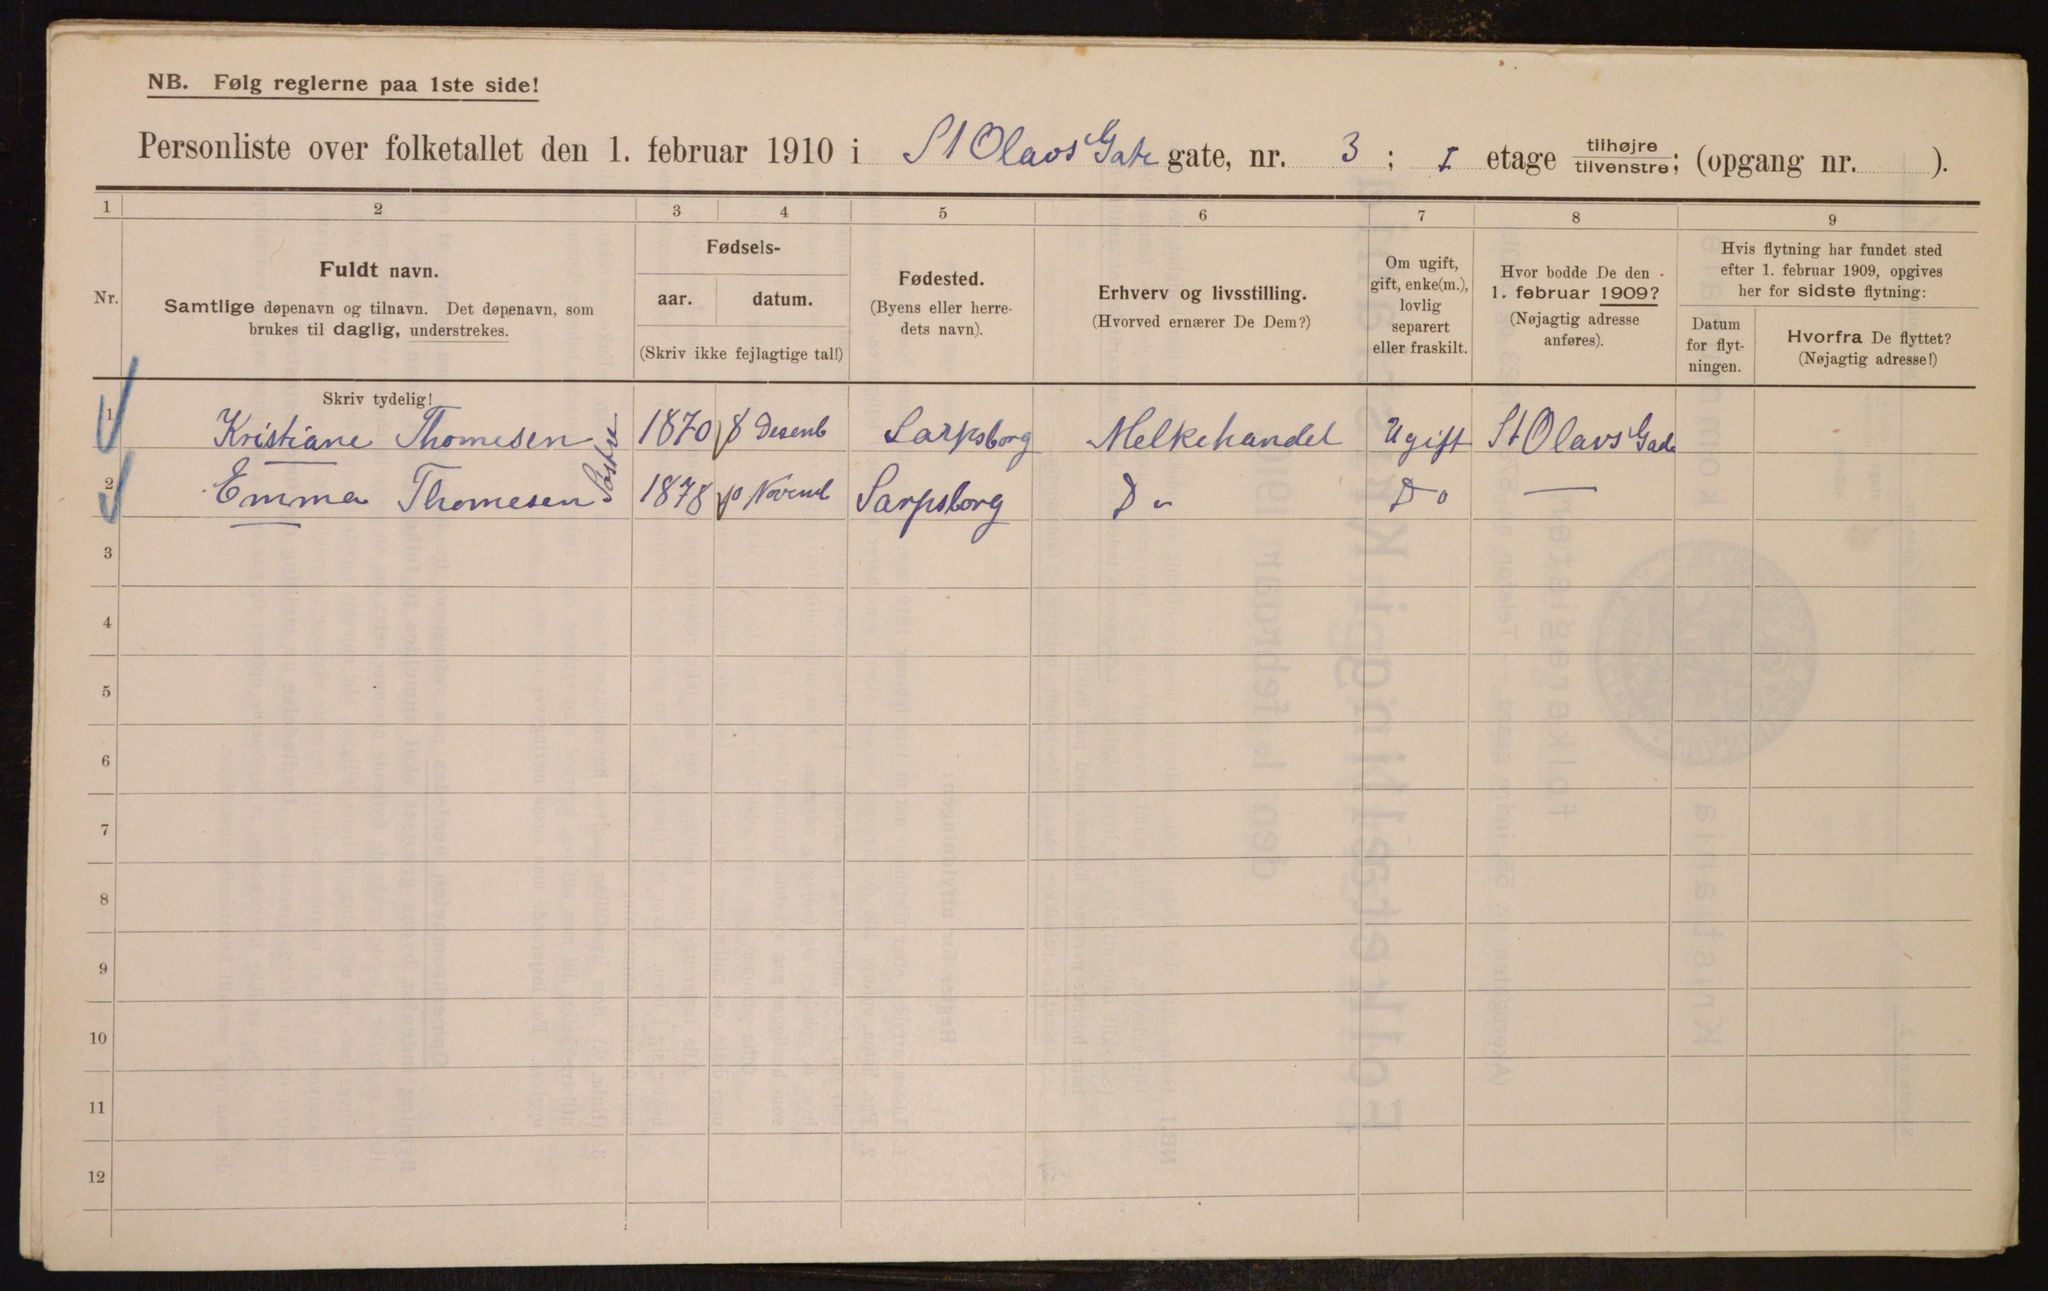 NB. Følg reglerne paa 1ste side!
Personliste over folketallet den 1. februar 1910 i St Olavs Gate gate, nr. 3 ; I etage tilhøjre/tilvenstre; (opgang nr. ).
1 2 3 4 5 6 7 8 9
Nr.
Fuldt navn.
Samtlige døpenavn og tilnavn. Det døpenavn, som
brukes til daglig, understrekes.
Fødsels-
aar. datum.
(Skriv ikke fejlagtige tal!)
Fødested.
(Byens eller herre-
dets navn).
Erhverv og livsstilling.
(Hvorved ernærer De Dem?)
Om ugift,
gift, enke(m.),
lovlig
separert
eller fraskilt.
Hvor bodde De den
1. februar 1909?
(Nøjagtig adresse
anføres).
Hvis flytning har fundet sted
efter 1. februar 1909, opgives
her for sidste flytning:
Datum
for flyt-
ningen.
Hvorfra De flyttet?
(Nøjagtig adresse!)
Skriv tydelig!
1 Kristiane Thomesen 1870 8 Desenb Sarpsborg Melkehandel Ugift St Olavs Gade
2 Emma Thomesen 1878 10 Novemb Sarpsborg Do Do —
3
4
5
6
7
8
9
10
11
12